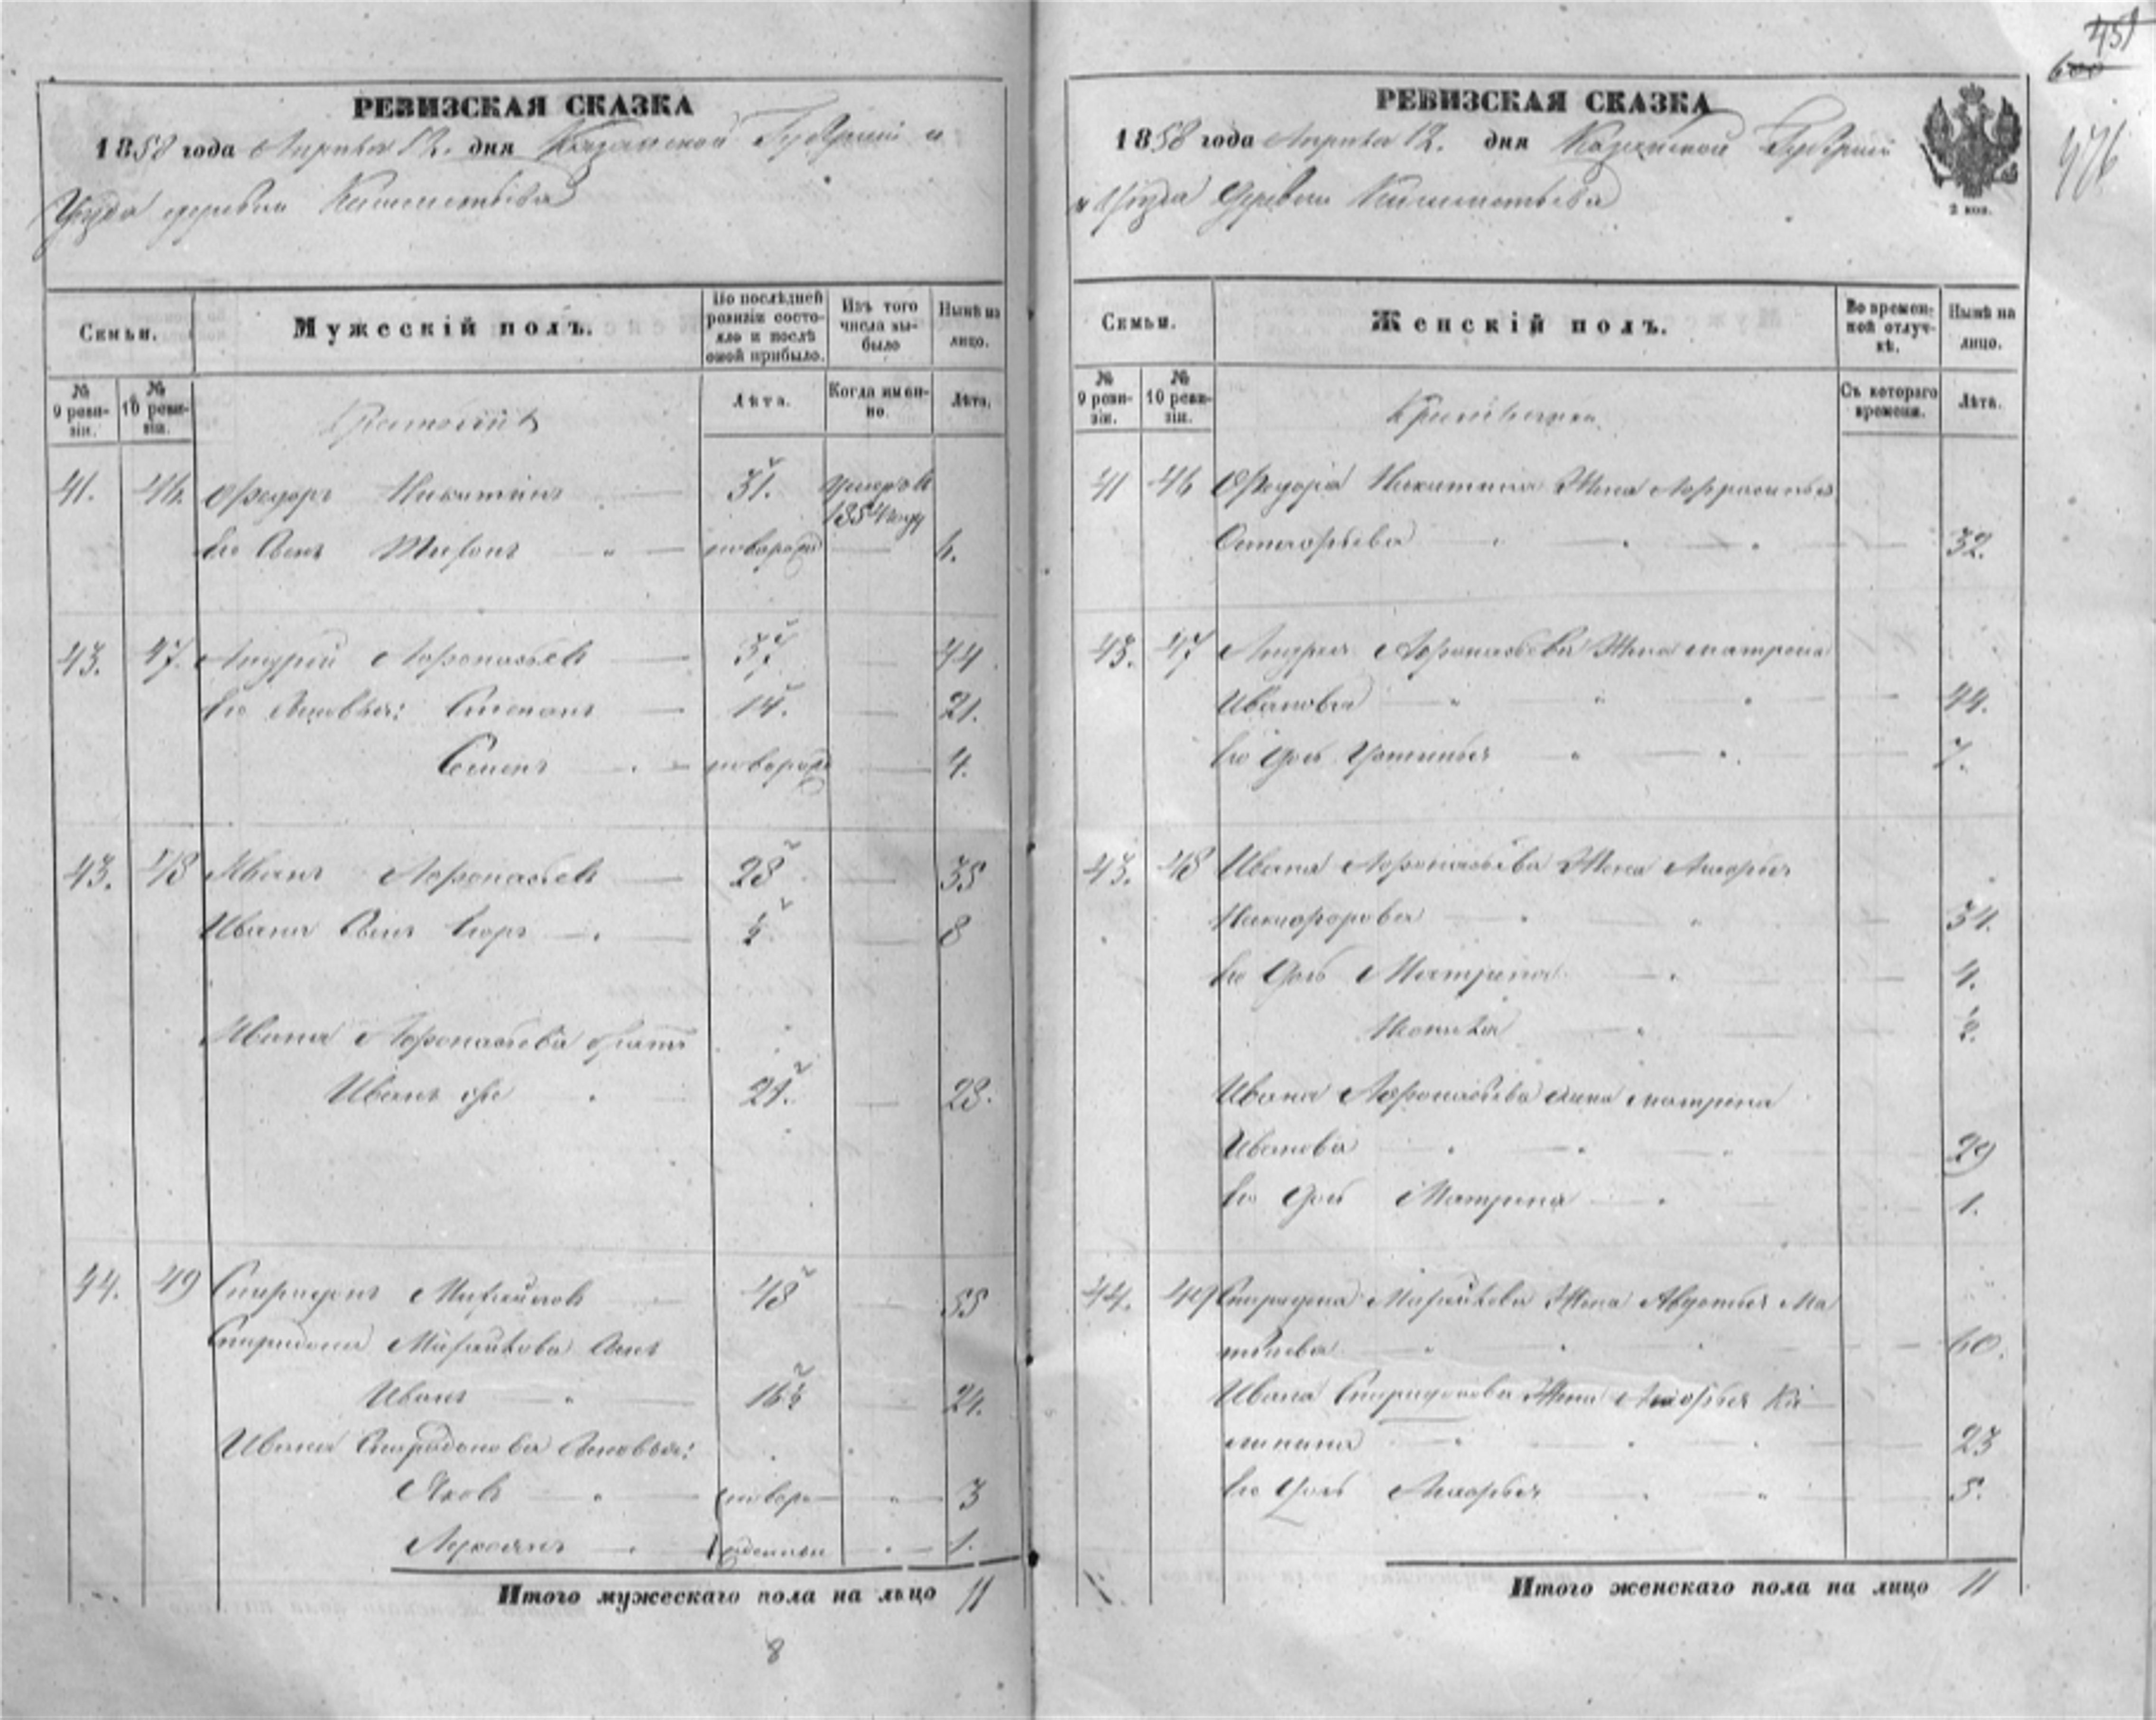 РЕВИЗСКАЯ СКАЗКА
1858 года Апреля 12. дня Казанской Губернии и
Уезда деревни
Семьи.
Мужескій полъ.
По послѣдней ревизіи состояло и послѣ оной прибыло.
Изъ того числа выбыло
Нынѣ на лицо.
№ 9 ревизіи.
№ 10 ревизіи.
Лѣта.
Когда именно.
Лѣта.
41. 46. Федоръ Никитинъ 31. умеръ въ 1854 году
Его Сынъ новорож 6.
43. 47. Андрей Афонасьевъ 37 44
Его Сыновья: Степанъ 14. 21.
Семенъ новорож 4.
43. 48 Иванъ Афонасьевъ 28 35
Ивана Сынъ Егоръ ½ 8
Ивана Афонасьева братъ
Иванъ же 21. 28.
44. 49 Спиридонъ Михайловъ 48 55
Спиридона Михайлова Сынъ
Иванъ 16½ 24.
Ивана Спиридонова Сыновья:
Яковъ новоро 3
жденные 1.
Итого мужескаго пола на лицо 11
8
451
600
476
РЕВИЗСКАЯ СКАЗКА
1858 года Апреля 12. дня Казанской Губернии
и Уезда Деревни
2 коп.
Семьи.
Женскій полъ.
Во временной отлучкѣ.
Нынѣ на лицо.
№ 9 ревизіи.
№ 10 ревизіи.
Съ котораго времени.
Лѣта.
41 46 Федора Никитина Жена
32.
43. 47 Андрея Афонасьева Жена матрена
Иванова 44.
Его Дочь Устинья 7.
43. 48 Ивана Афонасьева Жена Марья
Никифорова 34.
Его Дочь Матрена 4.
2.
Ивана Афонасьева жена матрена
Иванова 29
Его Дочь Матрена 1.
44. 49 Спиридона Михайлова Жена Авдотья Ма
твеева 60.
Ивана Спиридонова Жена
23
Его Дочь 5.
Итого женскаго пола на лицо 11